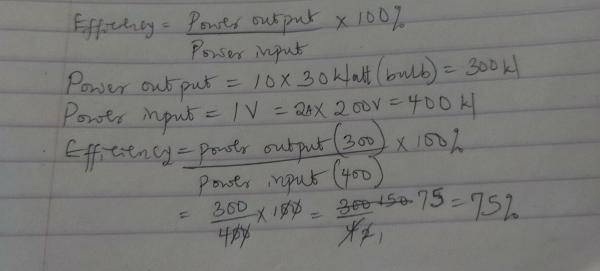 Efficiency = Power output × 100%
Power input
Power output = 10 × 30 Watt (bulb) = 300 W
Power input = IV = 2A × 200V = 400 W
Efficiency = power output (300) × 100%
Power input (400)
= 300 × 100 = 300 150 75 = 75%
400 4 2 1